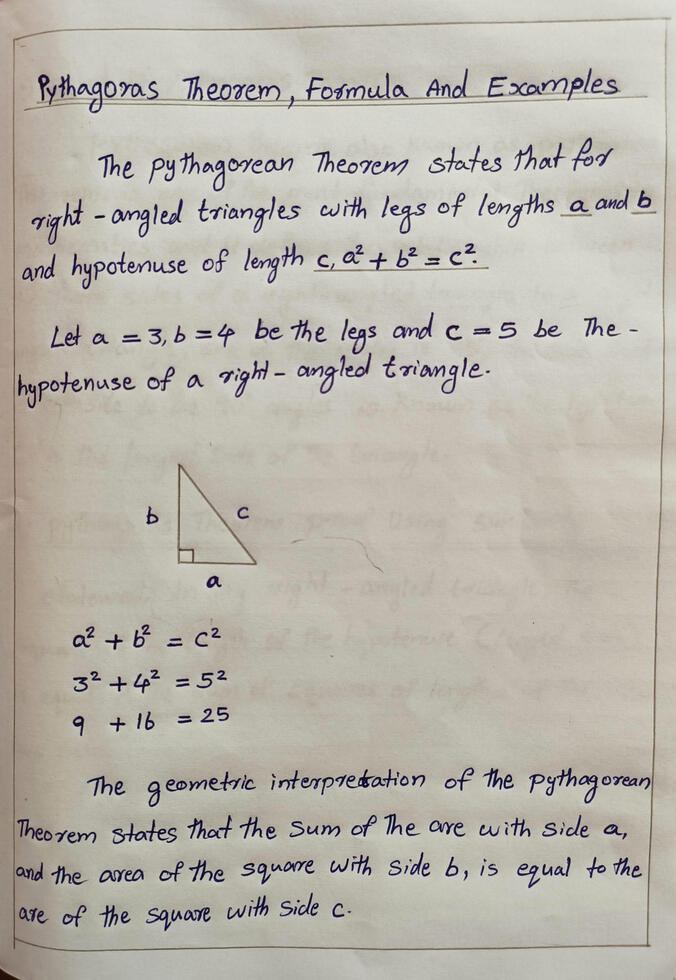 Pythagoras Theorem, Formula And Examples
The pythagorean Theorem states that for
right - angled triangles with legs of lengths a and b
and hypotenuse of length c, a² + b² = c².
Let a = 3, b = 4 be the legs and c = 5 be The -
hypotenuse of a right - angled triangle.
b
c
a
a² + b² = c²
3² + 4² = 5²
9 + 16 = 25
The geometric interpretation of the pythagorean
Theorem states that the sum of The are with side a,
and the area of the square with side b, is equal to the
are of the square with side c.